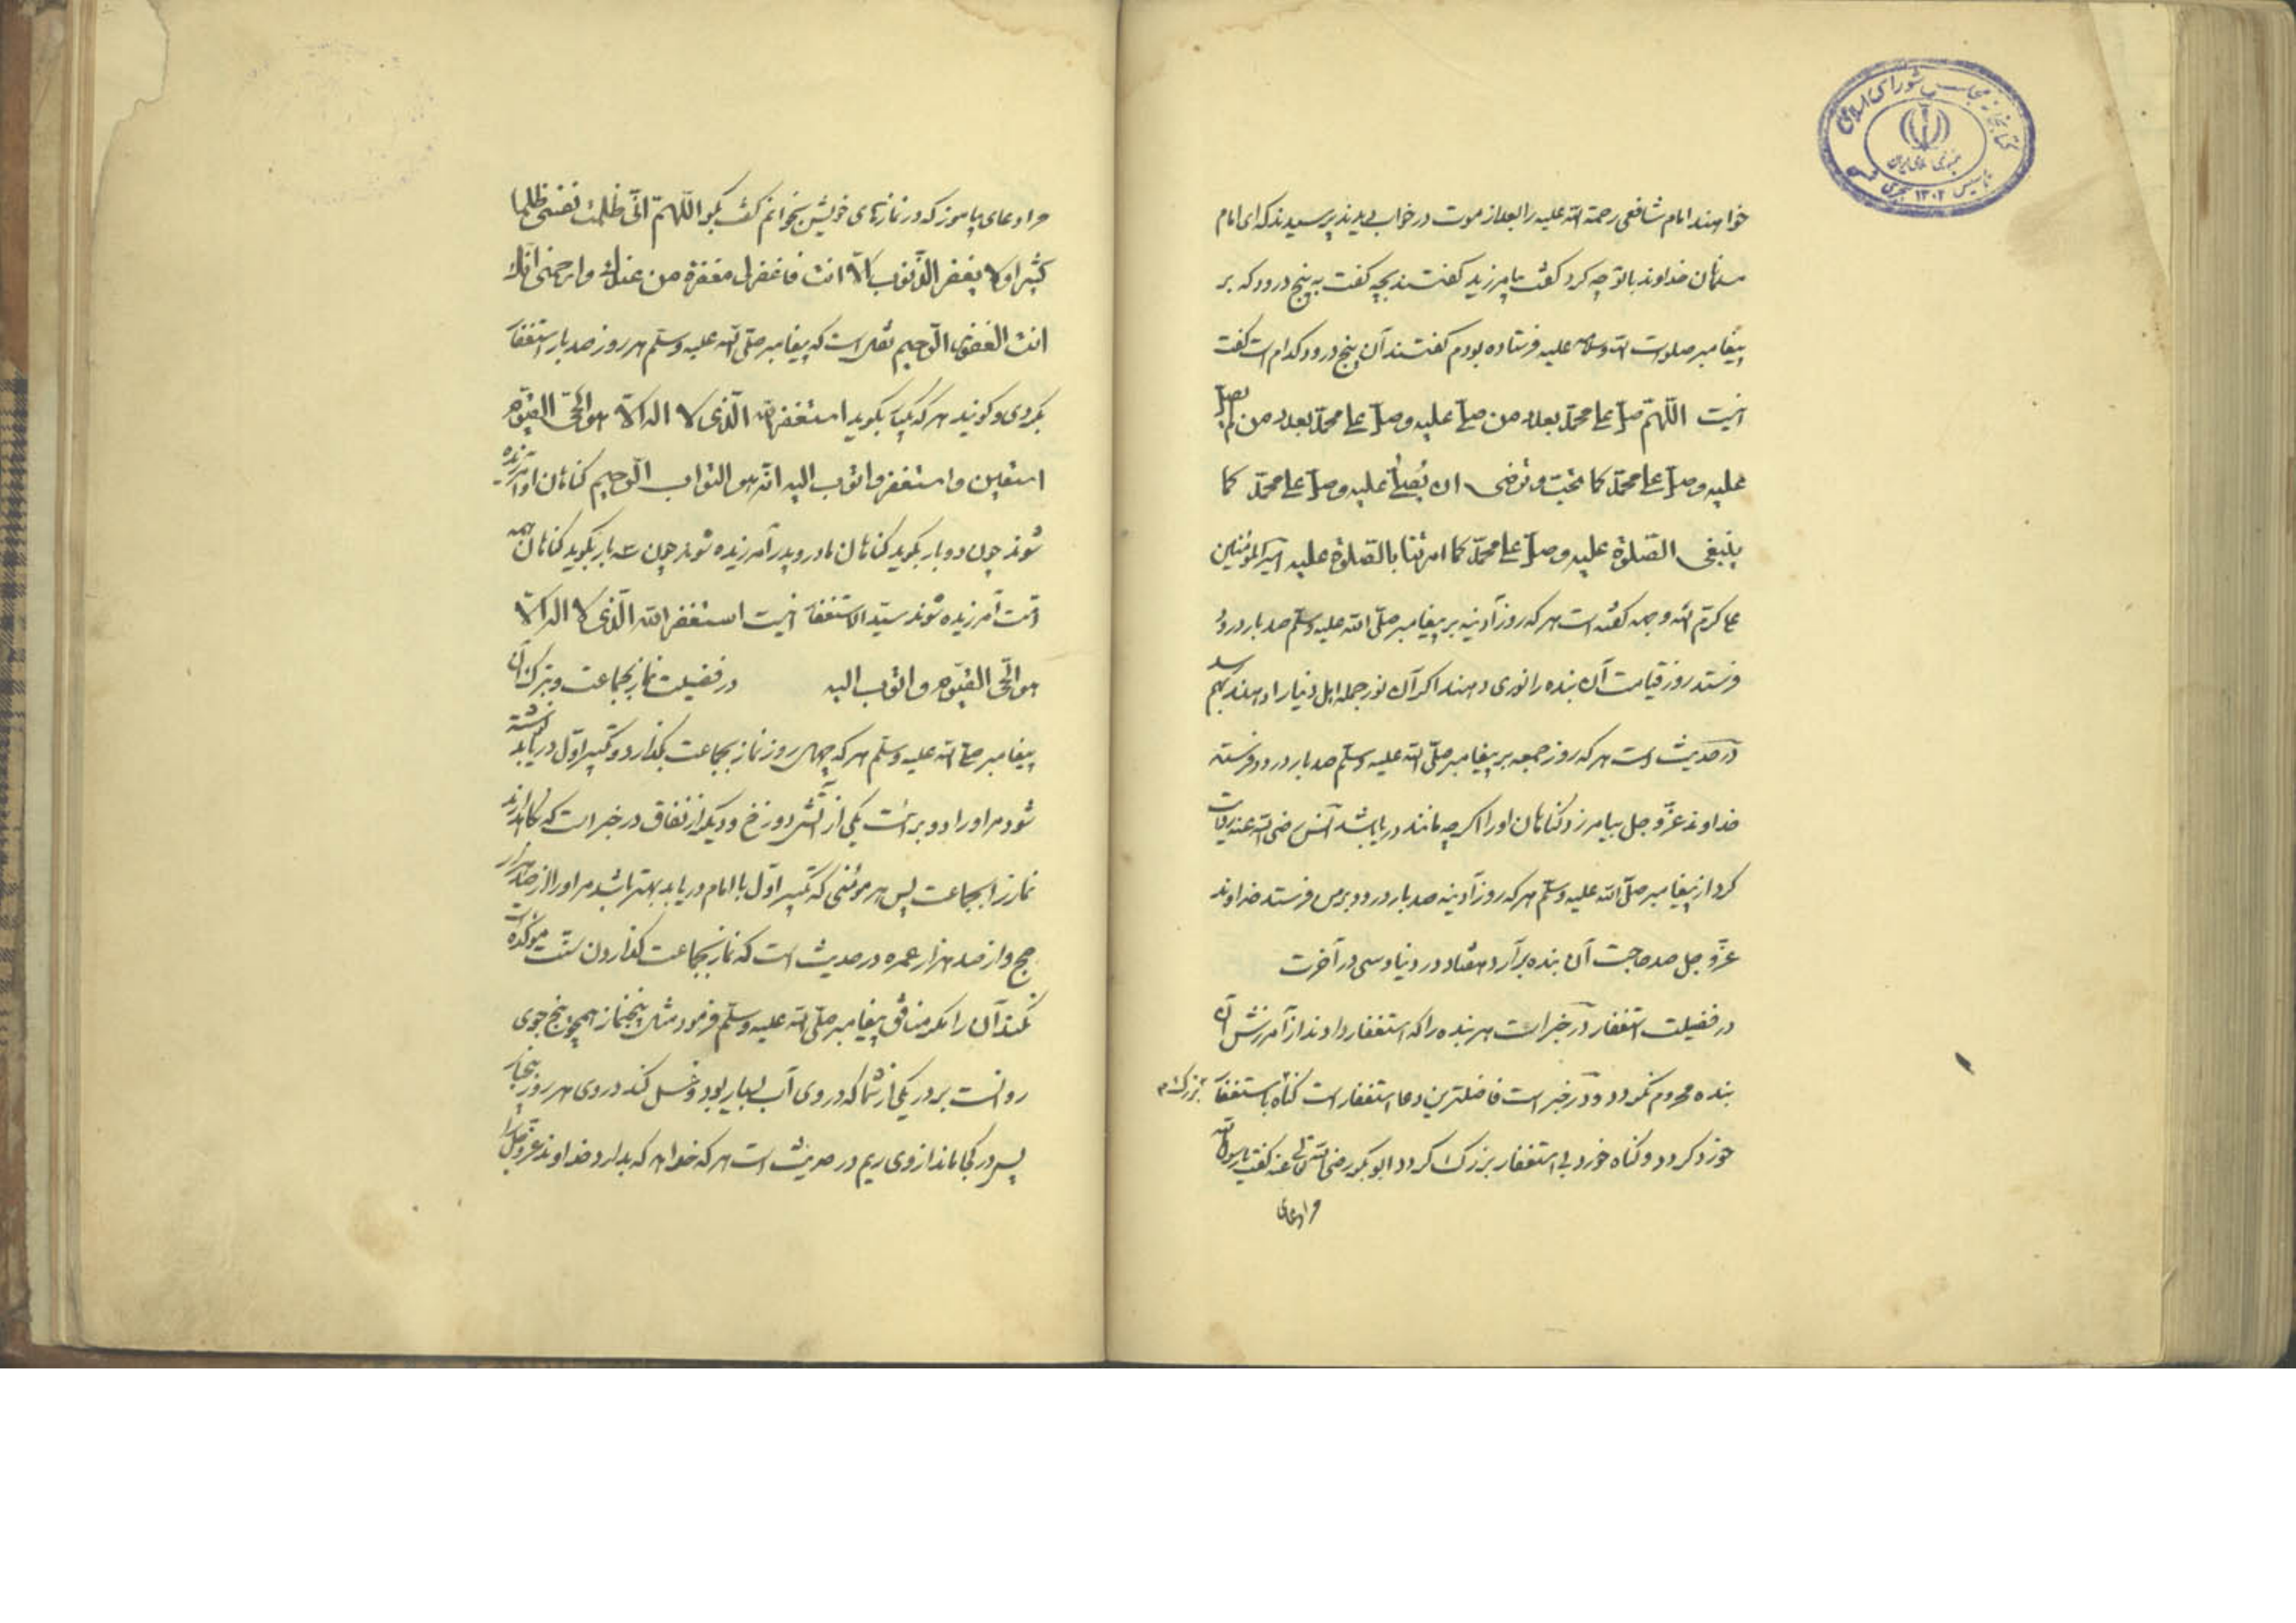 کتابخانه مجلس شورای اسلامی
جمهوری اسلامی ایران
تاسیس ۱۳۰۲ هجری
خواهند امام شافعی رحمة الله علیه را بعد از موت در خواب دیدند پرسیدند که ای امام
مسلمانان خداوند با تو چه کرد گفت بیامرزید گفتند بچه گفت به پنج درود که بر
پیغامبر صلوات الله وسلامه علیه فرستاده بودم گفتند آن پنج درود کدام است گفت
اینست اللّهمّ صلّ علی محمّد بعدد من صلّی علیه وصلّ علی محمّد بعدد من لم یصلّ
علیه وصلّ علی محمّد کما تحبّ وترضی ان یُصلّی علیه وصلّ علی محمّد کما
ینبغی الصّلوة علیه وصلّ علی محمّد کما امرتنا بالصّلوة علیه امیرالمؤمنین
علی کرّم الله وجهه گفته است هر که روز آدینه بر پیغامبر صلّی الله علیه وسلّم صد بار درود
فرستد روز قیامت آن بنده را نوری دهند اگر آن نور جمله اهل دنیا را دهند بهم رسد
در حدیث است هر که روز جمعه بر پیغامبر صلّی الله علیه وسلّم صد بار درود فرستد
خداوند عزّ وجل بیامرزد گناهان او را اگر چه مانند دریا باشد انس رضی الله عنه روایت
کرد از پیغامبر صلّی الله علیه وسلّم هر که روز آدینه صد بار درود بر من فرستد خداوند
عزّ وجل صد حاجت آن بنده برآرد هفتاد در دنیا و سی در آخرت
در فضیلت استغفار در خبر است هر بنده را که استغفار دادند از آمرزش آن
بنده محروم نگردد و در خبر است فاضلترین دعا استغفار است گناه باستغفار بزرگ
خورد گردد و گناه خورد بی استغفار بزرگ گردد ابوبکر رضی الله تعالی عنه گفت یا رسول الله
مرا دعای
مرا دعای بیاموز که در نمازهای خویش بخوانم گفت بگو اللّهمّ انّی ظلمت نفسی ظلما
کثیرا ولا یغفر الذّنوب الّا انت فاغفرلی مغفرة من عندک وارحمنی انّک
انت الغفور الرّحیم نقل است که پیغامبر صلّی الله علیه وسلّم هر روز صد بار استغفار
بکردی و گویند هر که یکبار بگوید استغفر الله الّذی لا اله الّا هو الحیّ القیّوم
استعین واستغفره واتوب الیه انّه هو التواب الرّحیم گناهان او آمرزیده
شوند چون دو بار بگوید گناهان مادر و پدر آمرزیده شوند چون سه بار بگوید گناهان همه
امّت آمرزیده شوند سیّد الاستغفار اینست استغفر الله الّذی لا اله الّا
هو الحّی القیّوم واتوب الیه در فضیلت نماز بجماعت و ترک آن
پیغامبر صلی الله علیه وسلّم هر که چهل روز نماز بجماعت بگذارد و تکبیر اوّل دریابد نوشته
شود مر او را دو برائت یکی از آتش دوزخ و دیگر از نفاق در خبر است که نگاهدارید
نماز را بجماعت پس هر مؤمنی که تکبیر اوّل با امام دریابد بهتر باشد مر او را از صد هزار
حج و از صد هزار عمره در حدیث است که نماز بجماعت گذاردن سنّت مؤکّده است
نکند آن را مگر منافق پیغامبر صلّی الله علیه وسلّم فرمود مثل پنج نماز همچو پنج جوی
روانست بر در یکی از شما که در وی آب بسیار بود و غسل کند در وی هر روز پنج بار
پس در کجا ماند از وی ریم در حدیث است هر که خواهد که بدارد خداوند عزّ وجلّ را